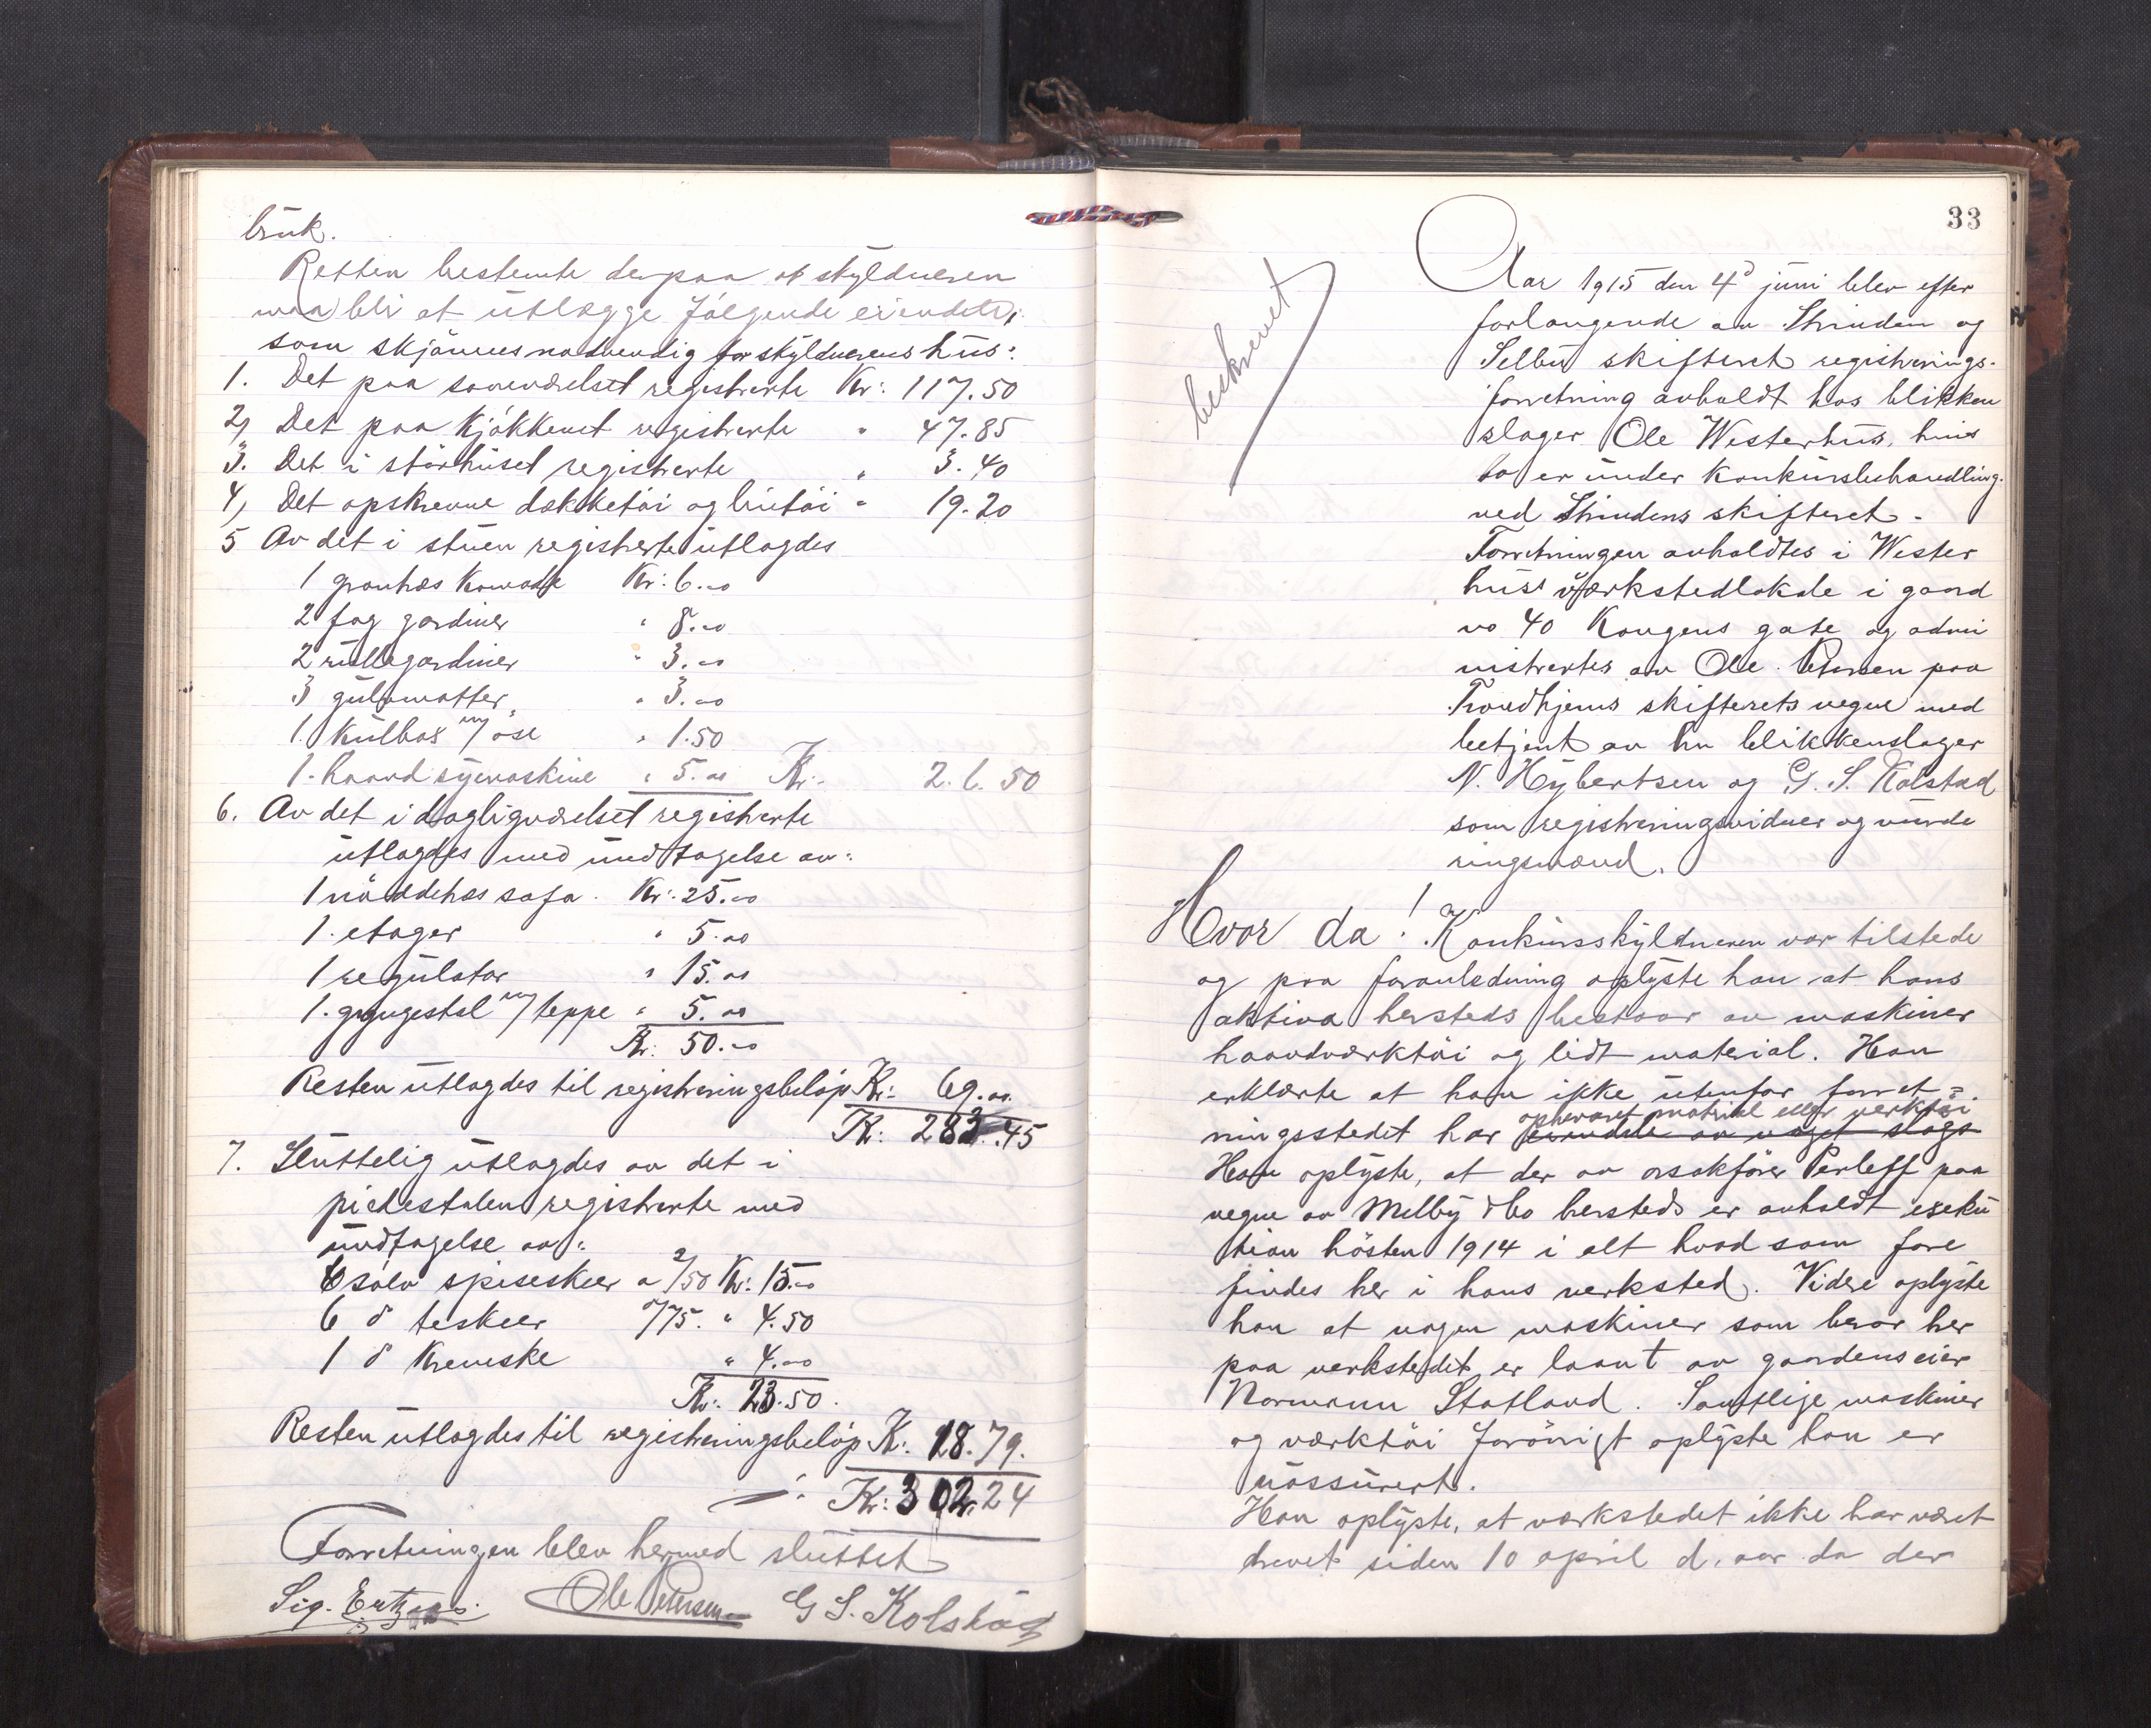 bruk.
Retten bestemte derpaa at skyldneren
maa bli at utlægge følgende eiendele,
som skjönnes nødvendig for skyldnerens hus:
1. Det paa soveværelset registrerte Kr: 117.50
2, Det paa kjökkenet registrerte " 47.85
3. Det i störhuset registrerte " 3.40
4, Det opskrevne dækketöi og lintöi " 19.20
5 Av det i stuen registrerte utlagdes
1 grantræs komode Kr: 6.00
2 fag gardiner " 8.00
2 rullegardiner " 3.00
3 gulvmatter " 3.00
1. kulbox m/ öse " 1.50
1. haandsymaskine " 5.00 Kr. 26.50
6. Av det i dagligværelset registrerte
utlagdes med undtagelse av:
1 nöddetræs sofa. Kr: 25.00
1. etager " 5.00
1 regulator " 15.00
1. gyngestol m/ teppe " 5.00
Kr: 50.00
Resten utlagdes til registreringsbelöp Kr: 69.00
Kr: 283.45
7. Sluttelig utlagdes av det i
piedestalen registrerte med
undtagelse av:
6 sölv spiseskeer a 2/50 Kr: 15.00
6 do teskeer 0/75. " 4.50
1 do kreveske " 4.00
Kr: 23.50.
Resten utlagdes til registreringsbelöp K: 18.79.
Kr: 302.24
Forretningen blev hermed sluttet
Sig. Ole Petersen G S. Kolstad
33
beskrevet
Aar 1915 den 4d juni blev efter
forlangende av Strinden og
Selbu skifteret registrerings-
forretning avholdt hos blikken
slager Ole Westerhus, hvis
bo er under konkursbehandling
ved Strindens skifteret.
Forretningen avholdtes i Wester
hus' værkstedlokale i gaard
no 40 Kongens gate og admi
nistrertes av Ole Petersen paa
Trondhjems skifterets vegne med
betjent av hr blikkenslager
N. Hybertsen og G. S. Kolstad
som registreringsvidner og vurde
ringsmænd.
Hvor da! Konkursskyldneren var tilstede
og paa foranledning oplyste han at hans
aktiva hersteds bestaar av maskiner
haandværktöi og lidt material. Han
erklærte at han ikke utenfor forret-
opbevaret material eller verktöi
ningsstedet har eiendele av noget slags
Han oplyste, at der av orsakförer Perleff paa
vegne av Melby & Co hersteds er avholdt eseku
tion hösten 1914 i alt hvad som fore
findes her i hans verksted. Videre oplyste
han at nogen maskiner som beror her
paa verkstedet er laant av gaardens eier
Normann Statland. Samtlige maskiner
og værktöi forövrigt oplyste han er
uassurert.
Han oplyste, at værkstedet ikke har været
drevet siden 10 april d. aar da der